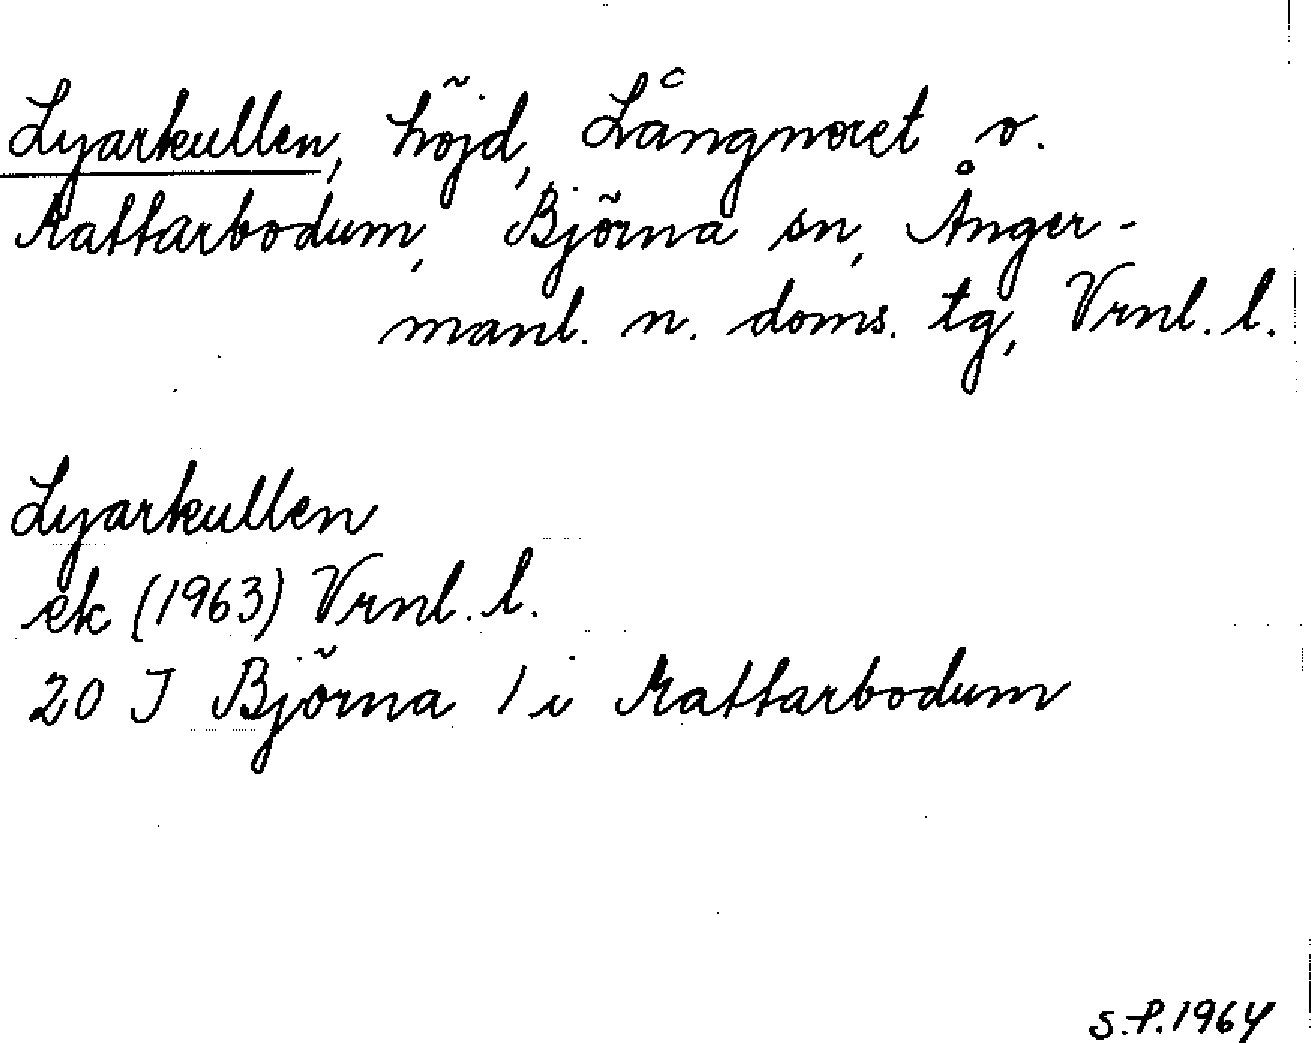 Lyarkullen, höjd, Långnoret o.
Kattarbodum, Björna sn, Ånger-
manl. n. doms. tg, Vrnl. l.
Lyarkullen
ek (1963) Vrnl. l.
20 J Björna 1 i Kattarbodum
S.P. 1964